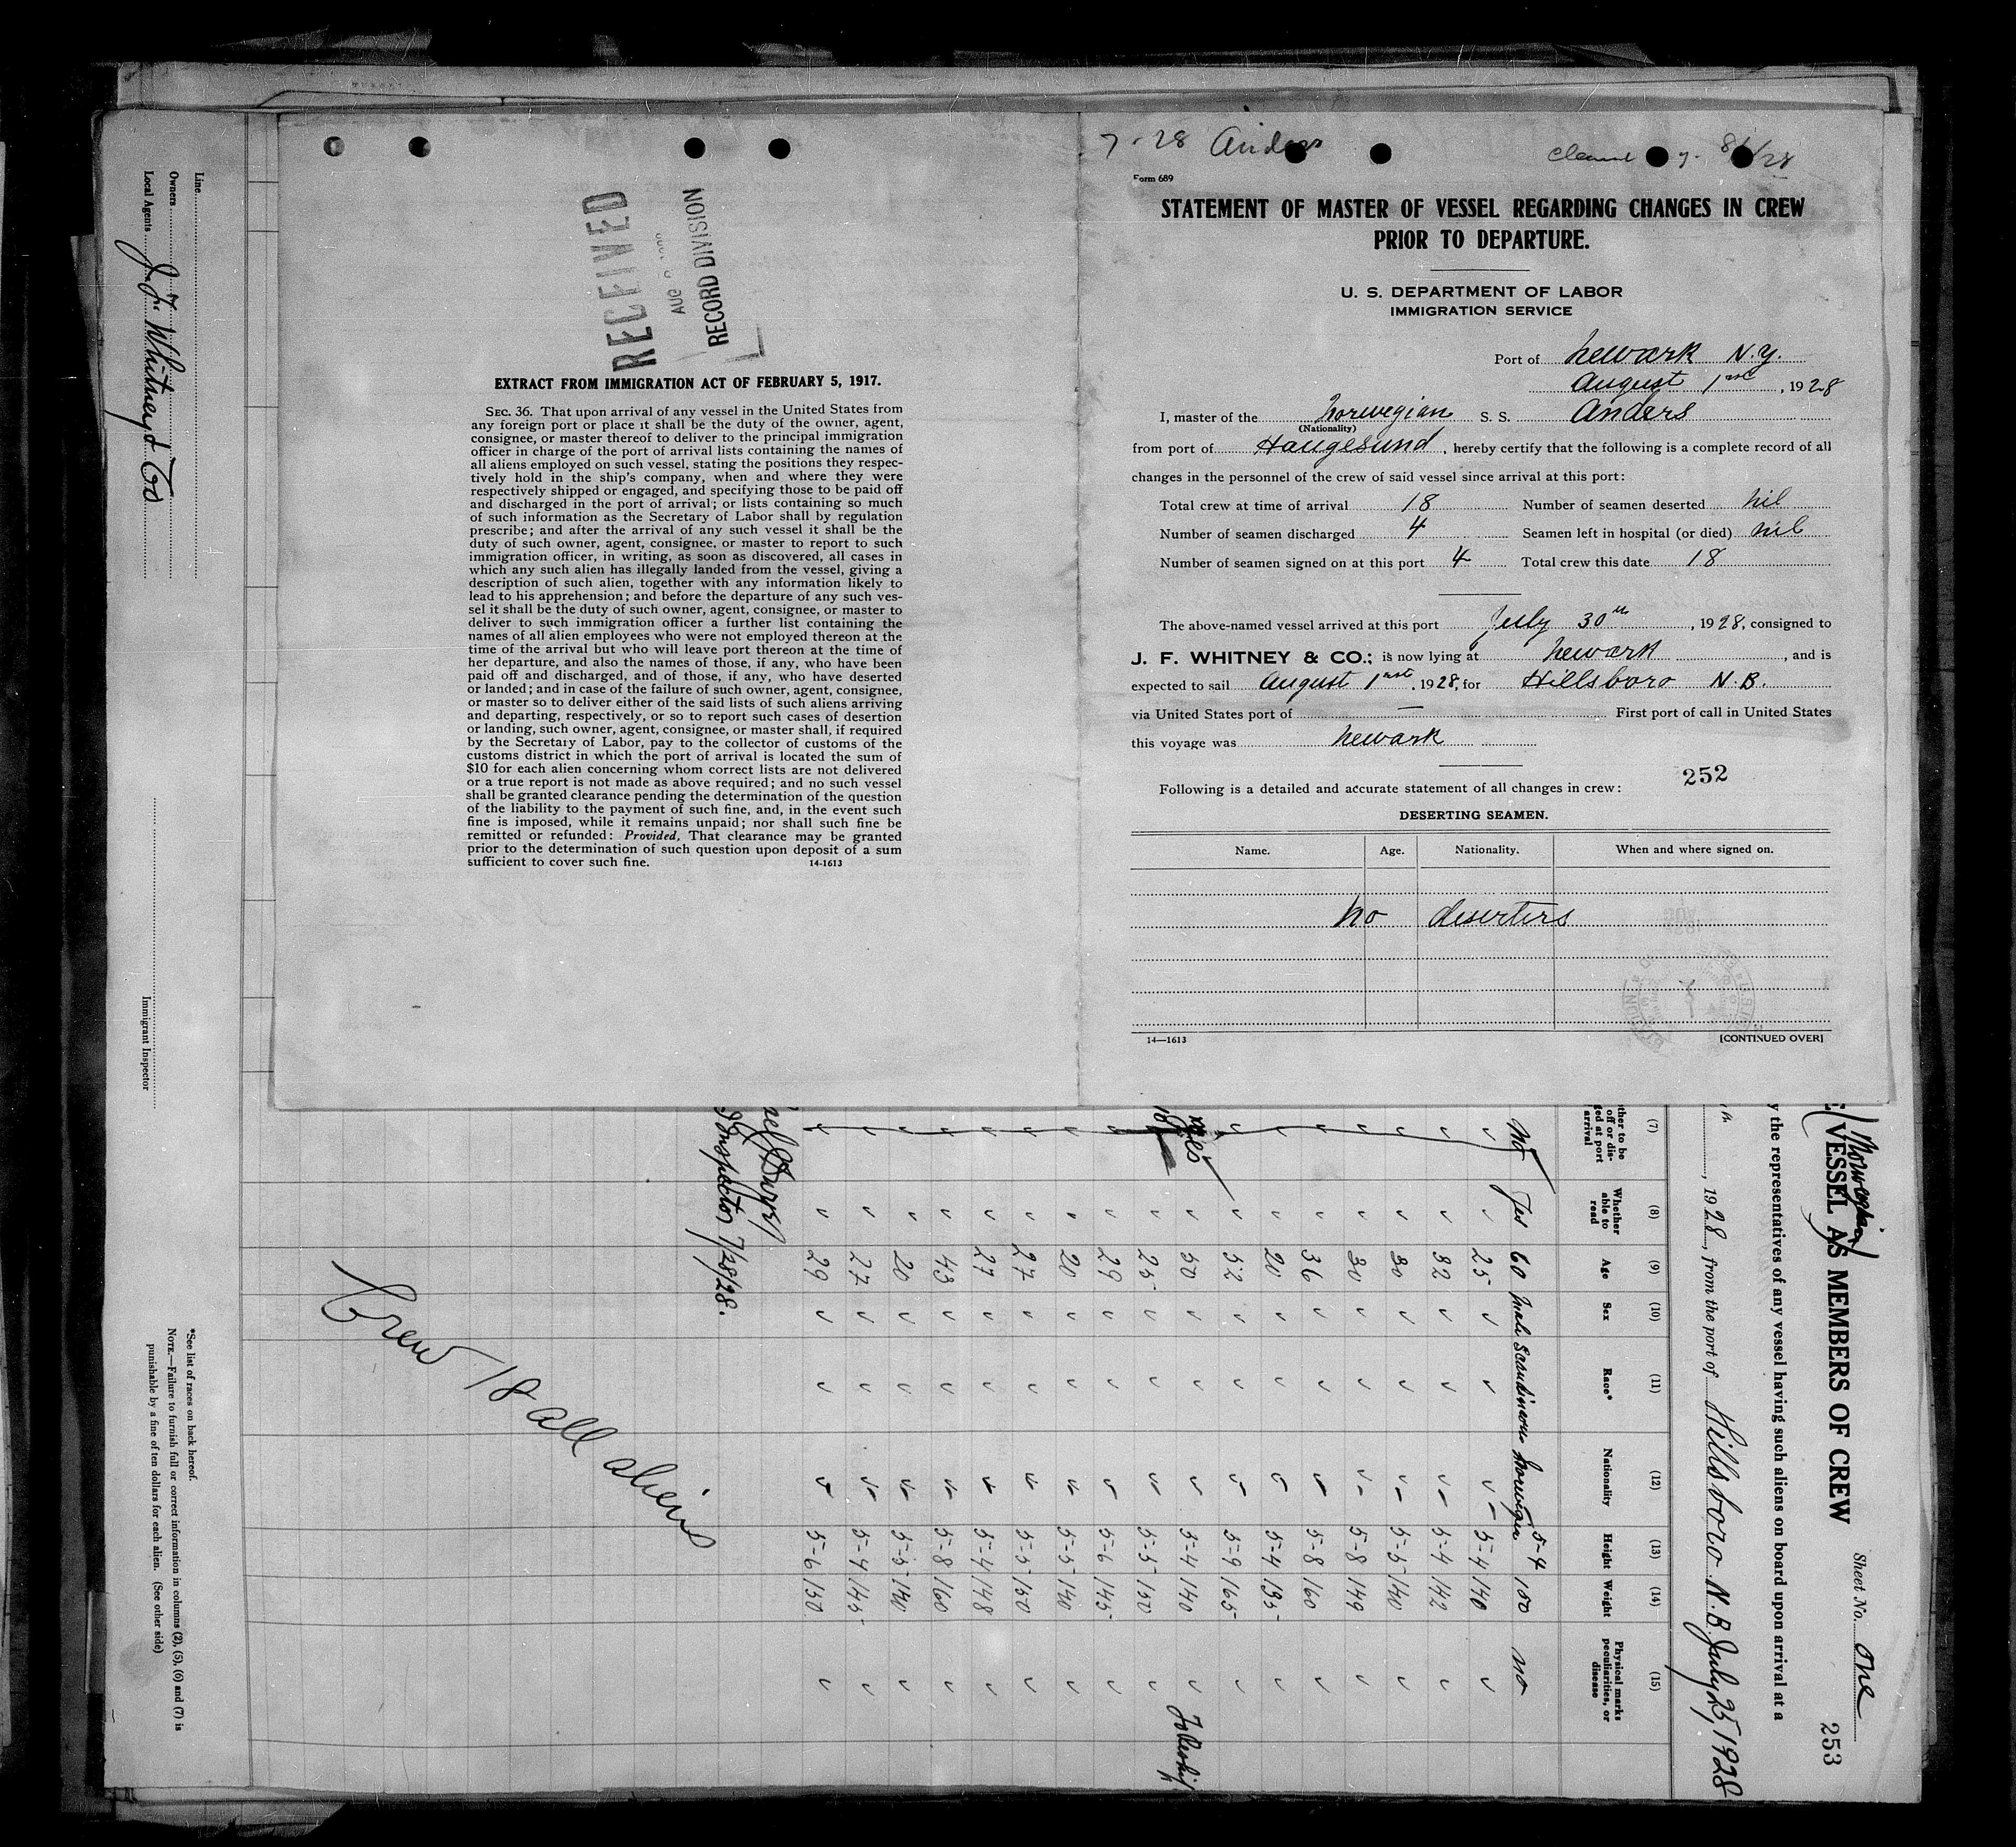 7-28 Anders
Form 689
STATEMENT OF MASTER OF VESSEL REGARDING CHANGES IN CREW
PRIOR TO DEPARTURE.
U. S. DEPARTMENT OF LABOR
IMMIGRATION SERVICE
Port of Newark N.Y.
August 1st, 1928
I, master of the Norwegian S. S. Anders
(Nationality)
from port of Haugesund, hereby certify that the following is a complete record of all
changes in the personnel of the crew of said vessel since arrival at this port:
Total crew at time of arrival 18 Number of seamen deserted nil
Number of seamen discharged 4 Seamen left in hospital (or died) nil
Number of seamen signed on at this port 4 Total crew this date 18
The above-named vessel arrived at this port July 30th, 1928, consigned to
J. F. WHITNEY & CO.; is now lying at Newark, and is
expected to sail August 1st, 1928, for Hillsboro N.B.
via United States port of — First port of call in United States
this voyage was Newark
252
Following is a detailed and accurate statement of all changes in crew:
DESERTING SEAMEN.
Name. Age. Nationality. When and where signed on.
No deserters
14—1613 [CONTINUED OVER]
RECEIVED
RECORD DIVISION
EXTRACT FROM IMMIGRATION ACT OF FEBRUARY 5, 1917.
SEC. 36. That upon arrival of any vessel in the United States from
any foreign port or place it shall be the duty of the owner, agent,
consignee, or master thereof to deliver to the principal immigration
officer in charge of the port of arrival lists containing the names of
all aliens employed on such vessel, stating the positions they respec-
tively hold in the ship's company, when and where they were
respectively shipped or engaged, and specifying those to be paid off
and discharged in the port of arrival; or lists containing so much
of such information as the Secretary of Labor shall by regulation
prescribe; and after the arrival of any such vessel it shall be the
duty of such owner, agent, consignee, or master to report to such
immigration officer, in writing, as soon as discovered, all cases in
which any such alien has illegally landed from the vessel, giving a
description of such alien, together with any information likely to
lead to his apprehension; and before the departure of any such ves-
sel it shall be the duty of such owner, agent, consignee, or master to
deliver to such immigration officer a further list containing the
names of all alien employees who were not employed thereon at the
time of the arrival but who will leave port thereon at the time of
her departure, and also the names of those, if any, who have been
paid off and discharged, and of those, if any, who have deserted
or landed; and in case of the failure of such owner, agent, consignee,
or master so to deliver either of the said lists of such aliens arriving
and departing, respectively, or so to report such cases of desertion
or landing, such owner, agent, consignee, or master shall, if required
by the Secretary of Labor, pay to the collector of customs of the
customs district in which the port of arrival is located the sum of
$10 for each alien concerning whom correct lists are not delivered
or a true report is not made as above required; and no such vessel
shall be granted clearance pending the determination of the question
of the liability to the payment of such fine, and, in the event such
fine is imposed, while it remains unpaid; nor shall such fine be
remitted or refunded: Provided, That clearance may be granted
prior to the determination of such question upon deposit of a sum
sufficient to cover such fine. 14-1613
Norwegian
VESSEL AS MEMBERS OF CREW
Sheet No. One
253
y the representatives of any vessel having such aliens on board upon arrival at a
, 1928, from the port of Hillsboro N.B. July 25, 1928
(7) (8) (9) (10) (11) (12) (13) (14) (15)
ther to be off or dis- ed at port arrival Whether able to read Age Sex Race* Nationality Height Weight Physical marks peculiarities, or disease
No Yes 60 Male Scandinavian Norwegian 5-4 150 no
25 5-4 140
32 5-4 142
30 5-5 140
30 5-8 149
36 5-8 160
20 5-4 135
52 5-9 165
yes 50 5-4 140
25 5-5 150
29 5-6 145
20 5-5 140
27 5-5 150
27 5-4 148
43 5-8 160
20 5-5 140
27 5-4 145
29 5-6 150
Inspector 7/28/28.
Crew 18 all aliens
Line
Owners
Local Agents J. F. Whitney & Co
Immigrant Inspector
*See list of races on back hereof.
NOTE.—Failure to furnish full or correct information in columns (2), (5), (6) and (7) is
punishable by a fine of ten dollars for each alien. (See other side)